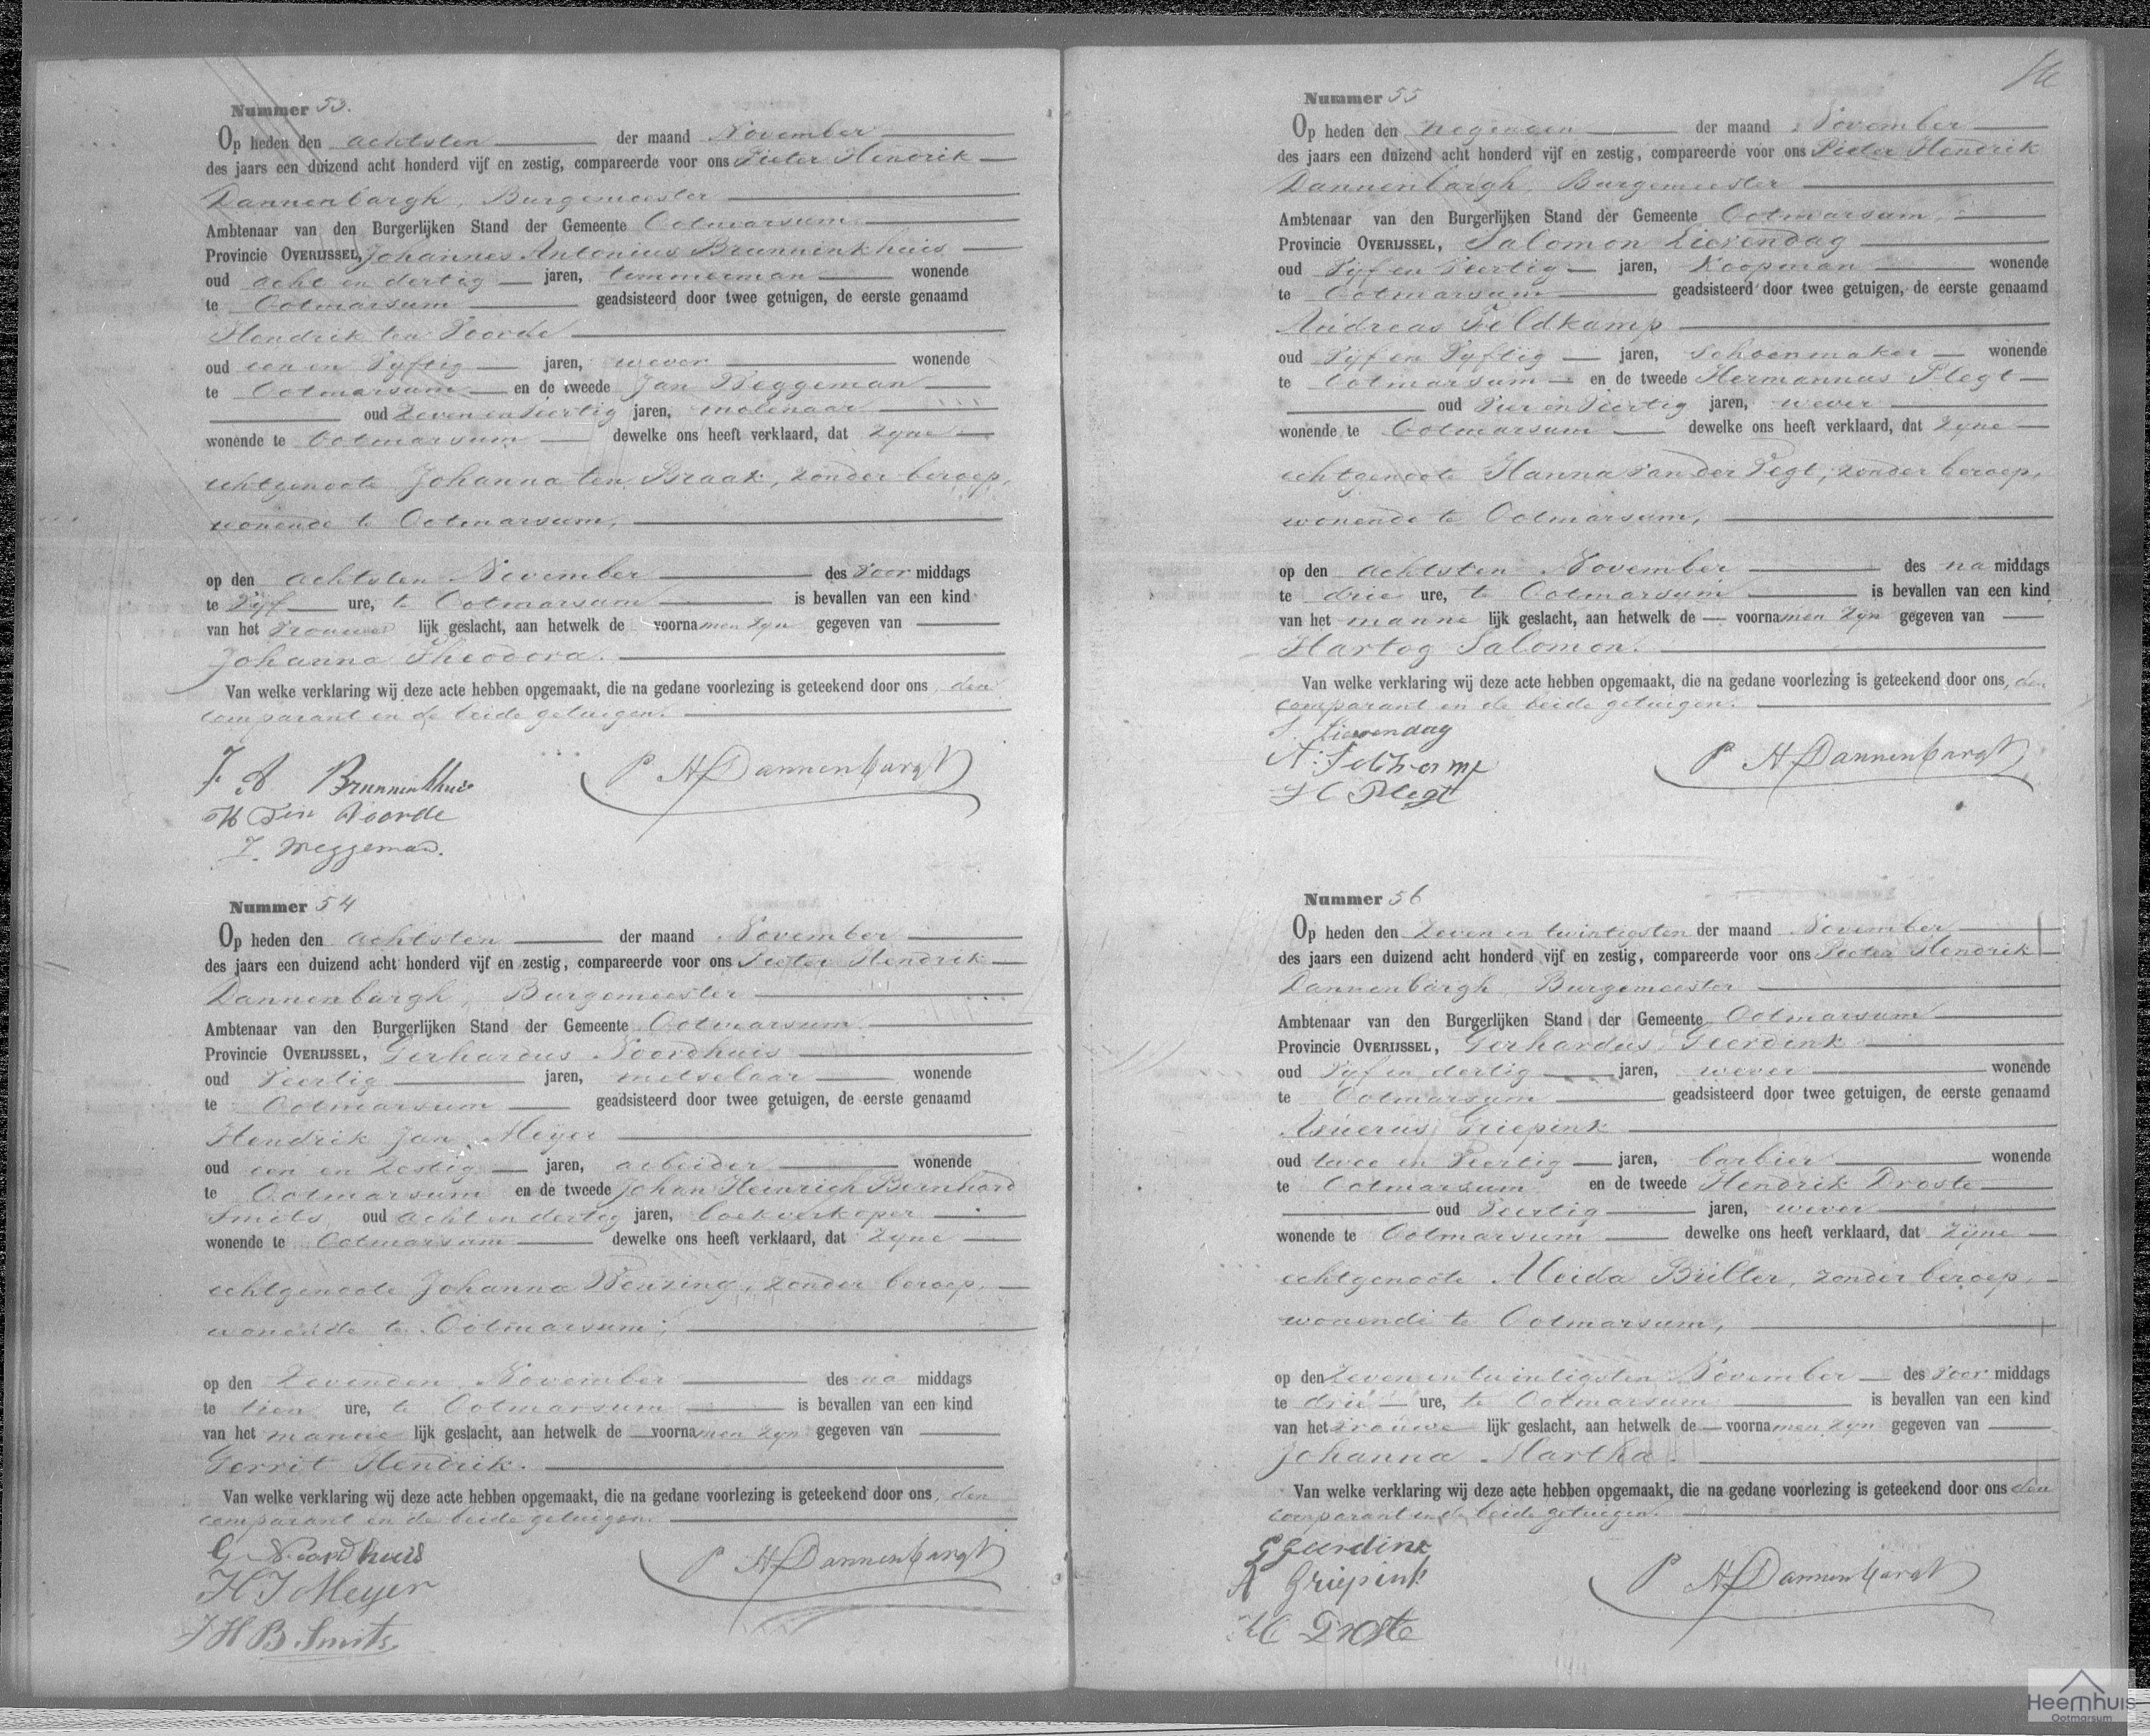 Nummer 53.
Op heden den achtsten der maand November
des jaars een duizend acht honderd vijf en zestig, compareerde voor ons Pieter Hendrik
Dannenbargh, Burgemeester
Ambtenaar van den Burgerlijken Stand der Gemeente Ootmarsum
Provincie OVERIJSSEL, Johannes Antonius Brunninkhuis
oud acht en dertig jaren, timmerman wonende
te Ootmarsum geadsisteerd door twee getuigen, de eerste genaamd
Hendrik ten Voorde
oud een en Vyftig jaren, wever wonende
te Ootmarsum en de tweede Jan Weggeman
oud Zeven en Veertig jaren, molenaar
wonende te Ootmarsum dewelke ons heeft verklaard, dat zyne
echtgenoote Johanna ten Braak, zonder beroep,
wonende te Ootmarsum,
op den achtsten November des Voor middags
te Vyf ure, te Ootmarsum is bevallen van een kind
van het Vrouwe lijk geslacht, aan hetwelk de voornamen zyn gegeven van
Johanna Theodora.
Van welke verklaring wij deze acte hebben opgemaakt, die na gedane voorlezing is geteekend door ons, den
comparant en de beide getuigen.
J A Brunninkhuis P H Dannenbargh
H Ten Voorde
J. Weggeman.
Nummer 54
Op heden den achtsten der maand November
des jaars een duizend acht honderd vijf en zestig, compareerde voor ons Pieter Hendrik
Dannenbargh, Burgemeester
Ambtenaar van den Burgerlijken Stand der Gemeente Ootmarsum
Provincie OVERIJSSEL, Gerhardus Noordhuis
oud Veertig jaren, metselaar wonende
te Ootmarsum geadsisteerd door twee getuigen, de eerste genaamd
Hendrik Jan Meyer
oud een en Zestig jaren, arbeider wonende
te Ootmarsum en de tweede Johan Heinrich Bernhard
Smits, oud acht en dertig jaren, boekverkoper
wonende te Ootmarsum dewelke ons heeft verklaard, dat zyne
echtgenoote Johanna Wenzing, zonder beroep,
wonende te Ootmarsum,
op den Zevenden November des na middags
te tien ure, te Ootmarsum is bevallen van een kind
van het manne lijk geslacht, aan hetwelk de voornamen zyn gegeven van
Gerrit Hendrik.
Van welke verklaring wij deze acte hebben opgemaakt, die na gedane voorlezing is geteekend door ons, den
comparant en de beide getuigen.
G Noordhuis P H Dannenbargh
H J Meyer
J H B. Smits
Nummer 55
Op heden den negenden der maand November
des jaars een duizend acht honderd vijf en zestig, compareerde voor ons Pieter Hendrik
Dannenbargh, Burgemeester
Ambtenaar van den Burgerlijken Stand der Gemeente Ootmarsum,
Provincie OVERIJSSEL, Salomon Lievendag
oud Vyf en Veertig jaren, Koopman wonende
te Ootmarsum geadsisteerd door twee getuigen, de eerste genaamd
Andreas Veldkamp
oud Vyf en Vyftig jaren, schoenmaker wonende
te Ootmarsum en de tweede Hermannus Plegt
oud Vier en Veertig jaren, wever
wonende te Ootmarsum dewelke ons heeft verklaard, dat zyne
echtgenoote Hanna van der Vegt, zonder beroep,
wonende te Ootmarsum,
op den achtsten November des na middags
te drie ure, te Ootmarsum is bevallen van een kind
van het manne lijk geslacht, aan hetwelk de voornamen zyn gegeven van
Hartog Salomon.
Van welke verklaring wij deze acte hebben opgemaakt, die na gedane voorlezing is geteekend door ons, den
comparant en de beide getuigen.
S. Lievendag
A. Feltkamp P H Dannenbargh
H Plegt
Nummer 56
Op heden den Zeven en twintigsten der maand November
des jaars een duizend acht honderd vijf en zestig, compareerde voor ons Pieter Hendrik
Dannenbargh, Burgemeester
Ambtenaar van den Burgerlijken Stand der Gemeente Ootmarsum
Provincie OVERIJSSEL, Gerhardus Geerdink
oud Vyf en dertig jaren, wever wonende
te Ootmarsum geadsisteerd door twee getuigen, de eerste genaamd
Asuerus Griepink
oud twee en Veertig jaren, barbier wonende
te Ootmarsum en de tweede Hendrik Droste
oud Veertig jaren, wever
wonende te Ootmarsum dewelke ons heeft verklaard, dat zyne
echtgenoote Aleida Bulter, zonder beroep,
wonende te Ootmarsum,
op den Zeven en twintigsten November des Voor middags
te drie ure, te Ootmarsum is bevallen van een kind
van het Vrouwe lijk geslacht, aan hetwelk de voornamen zyn gegeven van
Johanna Martha.
Van welke verklaring wij deze acte hebben opgemaakt, die na gedane voorlezing is geteekend door ons den
comparant en de beide getuigen.
G Geerdink
A Griepink P H Dannenbargh
H Droste
Heemhuis
Ootmarsum